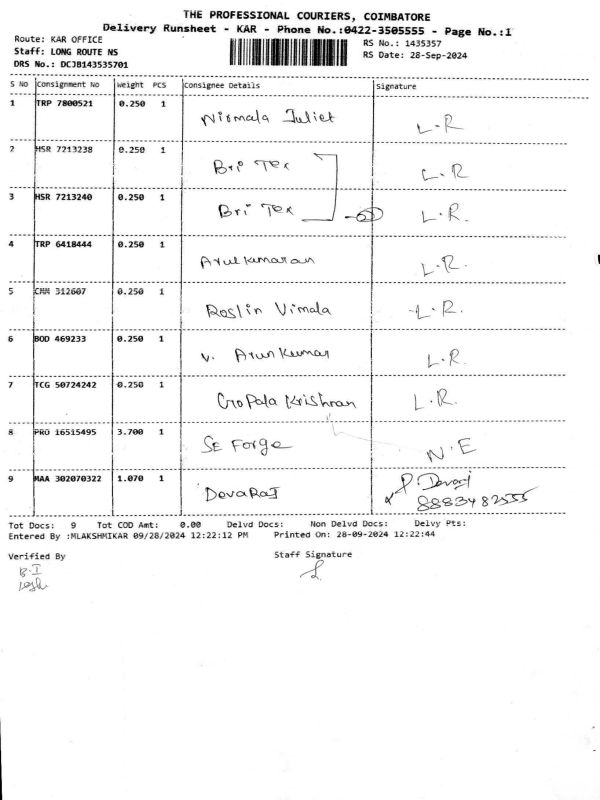 THE PROFESSIONAL COURIERS, COIMBATORE
Delivery Runsheet - KAR - Phone No.:0422-3505555 - Page No.:1
Route: KAR OFFICE
RS No.: 1435357
Staff: LONG ROUTE NS
RS Date: 28-Sep-2024
DRS No.: DCJB143535701
S No Consignment No Weight PCS Consignee Details Signature
1 TRP 7800521 0.250 1 Nirmala Juliet L.R
2 HSR 7213238 0.250 1 Bri Tex L.R
3 HSR 7213240 0.250 1 Bri Tex L.R.
4 TRP 6418444 0.250 1 Arulkumaran L.R.
5 CMM 312607 0.250 1 Roslin Vimala L.R.
6 BOD 469233 0.250 1 V. Arun Kumar L.R.
7 TCG 50724242 0.250 1 Gopala Krishnan L.R.
8 PRO 16515495 3.700 1 SE Forge N.E
9 MAA 302070322 1.070 1 DevaRaj P. Devaraj
8883482555
Tot Docs: 9 Tot COD Amt: 0.00 Delvd Docs: Non Delvd Docs: Delvy Pts:
Entered By :MLAKSHMIKAR 09/28/2024 12:22:12 PM Printed On: 28-09-2024 12:22:44
Verified By Staff Signature
B.I